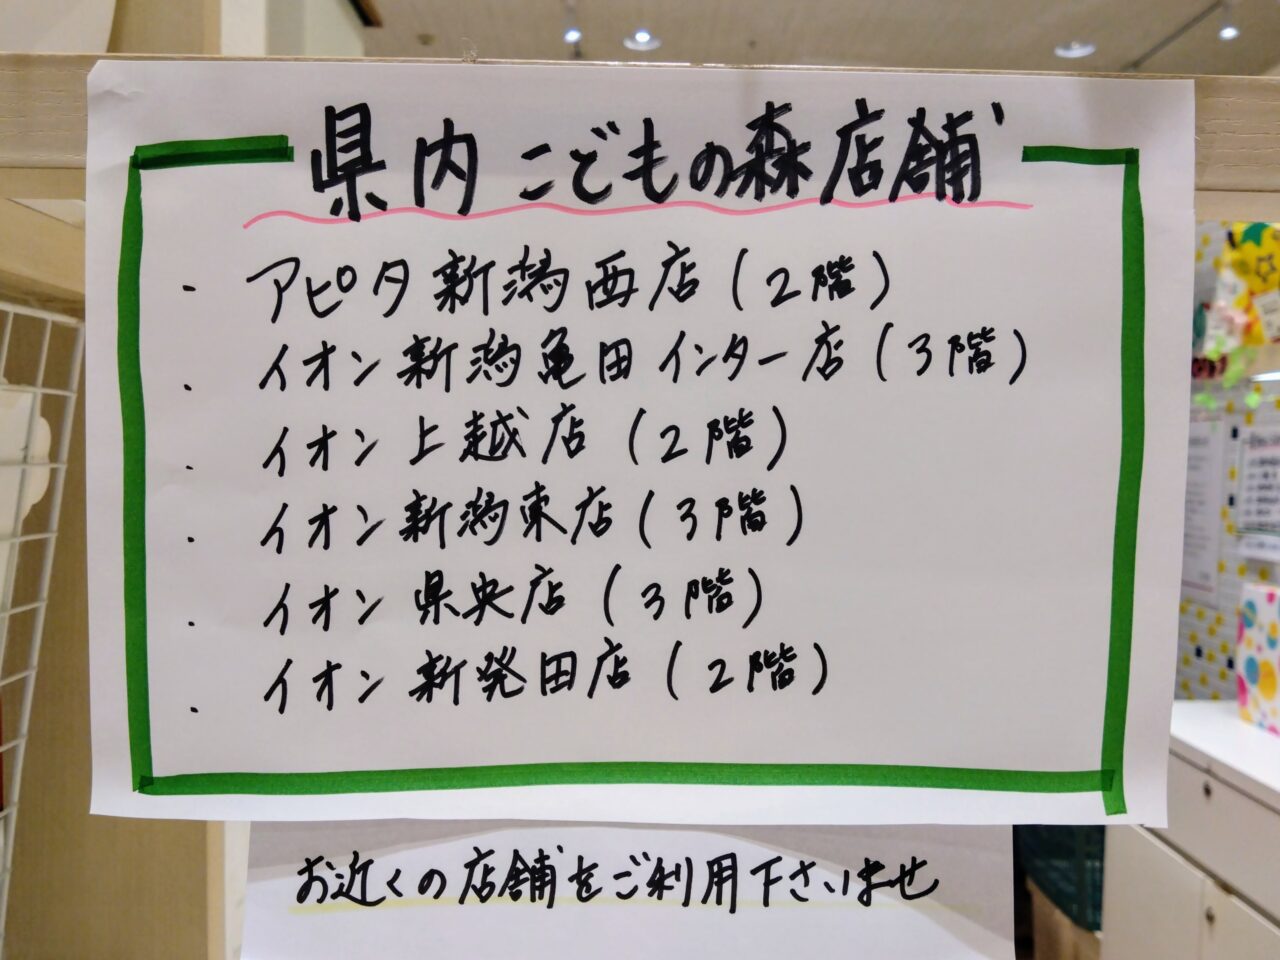 県内こどもの森店舗
・アピタ新潟西店(2階)
・イオン新潟亀田インター店(3階)
・イオン上越店(2階)
・イオン新潟東店(3階)
・イオン県央店(3階)
・イオン新発田店(2階)
お近くの店舗をご利用下さいませ